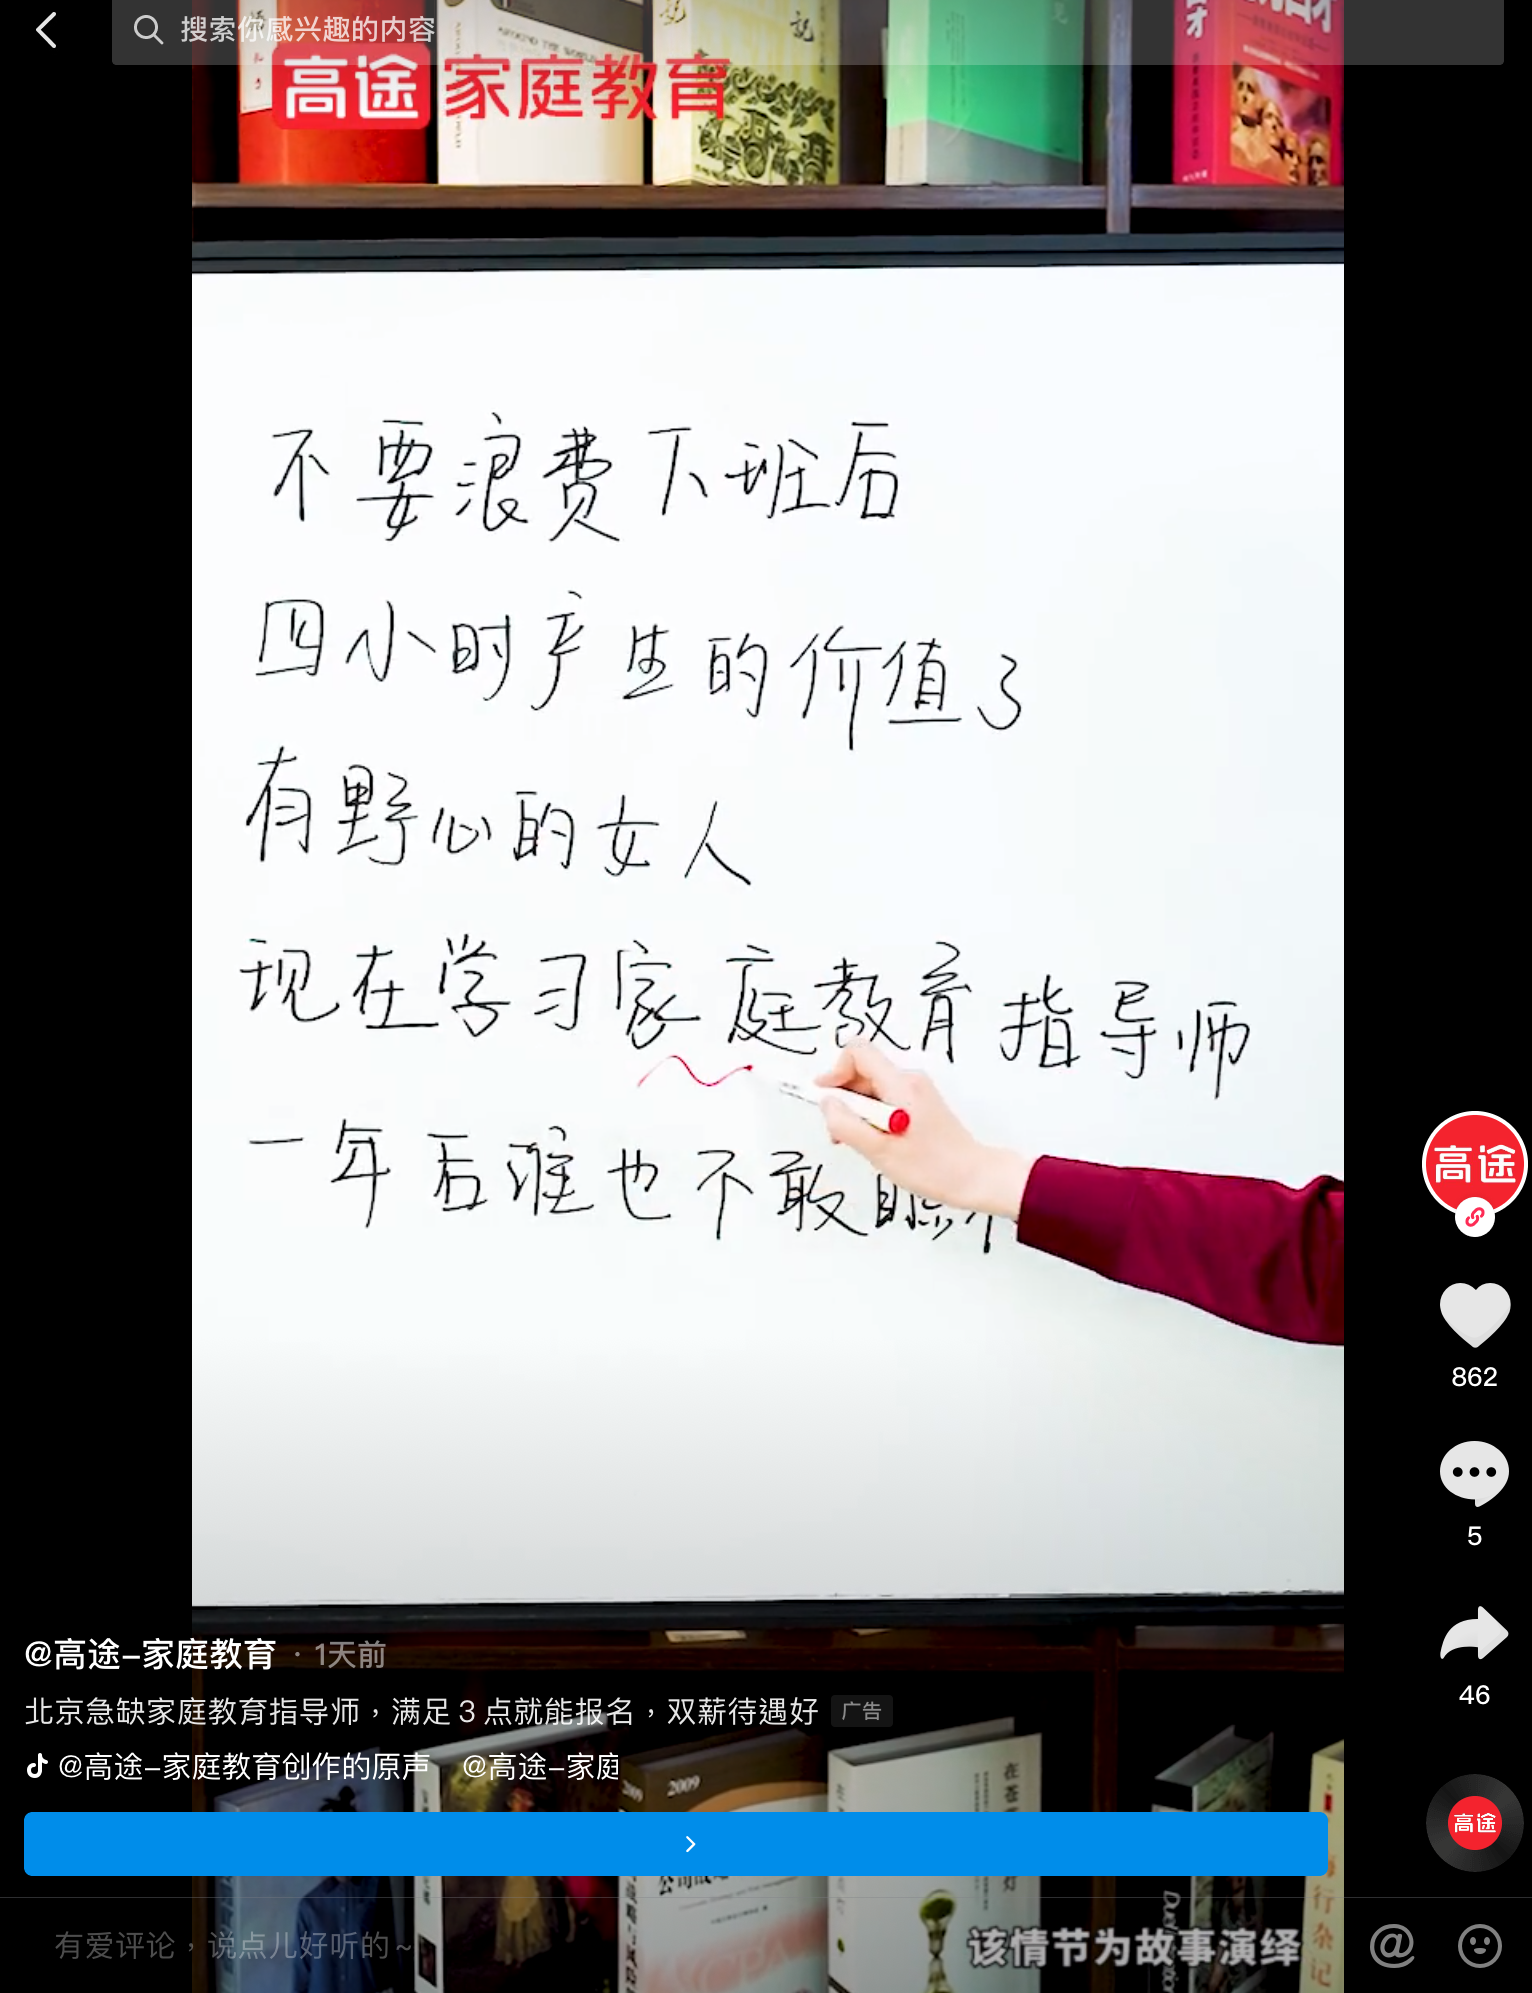 搜索你感兴趣的内容
高途 家庭教育
不要浪费下班后
四小时产生的价值了
有野心的女人
现在学习家庭教育指导师
一年后谁也不敢瞧不
高途
862
5
46
@高途-家庭教育 · 1天前
北京急缺家庭教育指导师，满足 3 点就能报名，双薪待遇好 广告
@高途-家庭教育创作的原声 @高途-家庭
高途
2009
有爱评论，说点儿好听的~
该情节为故事演绎